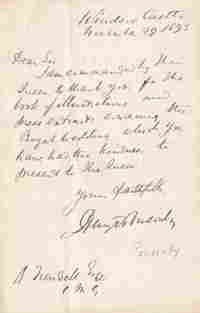 Windsor Castle
29 1893
Dear Sir
I am commanded by the
Queen to thank you for the
book of Illustrations and
press extracts the
Royal Wedding which you
have had the kindness to
present to The Queen
Yours faithfully
Henry Ponsonby
Ponsonby
A Esq
C.M.G.